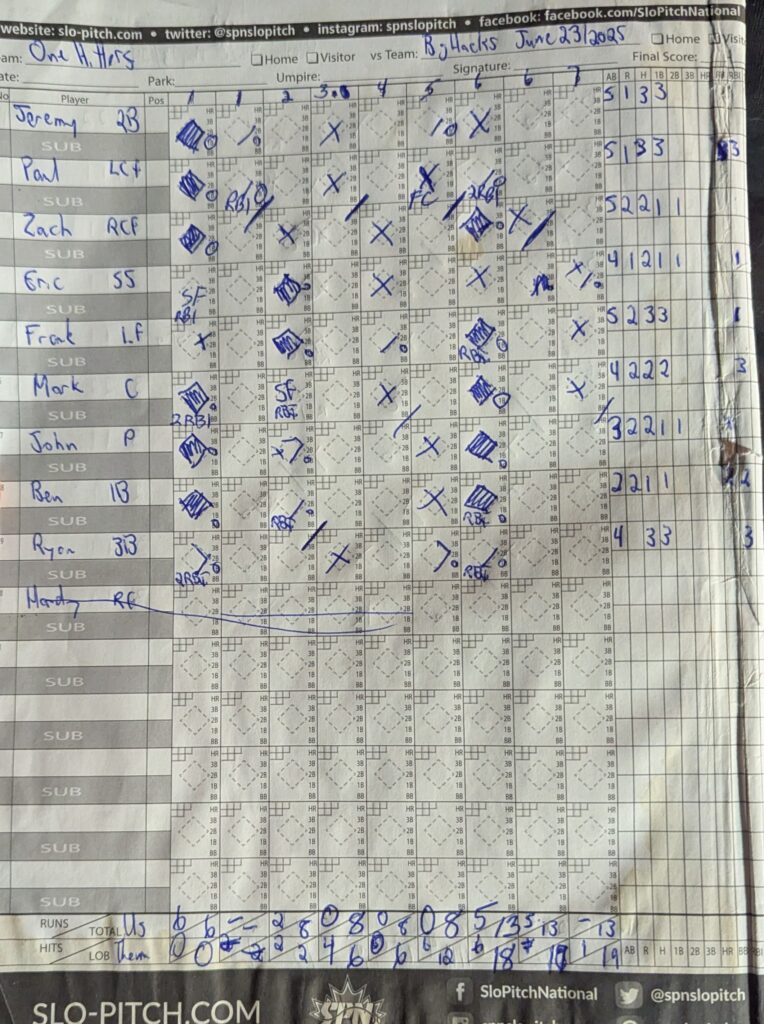 website: slo-pitch.com • twitter: @spnslopitch • instagram: spnslopitch • facebook: facebook.com/SloPitchNational
eam: One Hitters Home Visitor vs Team: BJ Hacks June 23/2025 Home Visit
ate: Park: Umpire: Signature: Final Score:
No Player Pos 1 1 2 3 4 5 6 6 7 AB R H 1B 2B 3B HR RBI
Jeremy 2B 5 1 3 3
SUB
Paul LCF RBI FC 2RBI 5 1 3 3 3
SUB
Zach RCF 5 2 2 1 1
SUB
Eric SS SF RBI 4 1 2 1 1 1
SUB
Frank LF RBI 5 2 3 3 1
SUB
Mark C 2RBI SF RBI 4 2 2 2 3
SUB
John P 3 2 2 1 1
SUB
Ben 1B RBI RBI 2 2 1 1 2
SUB
Ryan 3B 2RBI RBI 4 3 3 3
SUB
Hardy RF
SUB
SUB
SUB
SUB
SUB
SUB
RUNS TOTAL Us 6 6 - - 2 8 0 8 0 8 0 8 5 13 5 13 - 13
HITS LOB Them 0 0 2 2 4 6 0 6 6 12 6 18 1 19 AB R H 1B 2B 3B HR BB RBI
SLO-PITCH.COM SPN SloPitchNational @spnslopitch
spnslopitch